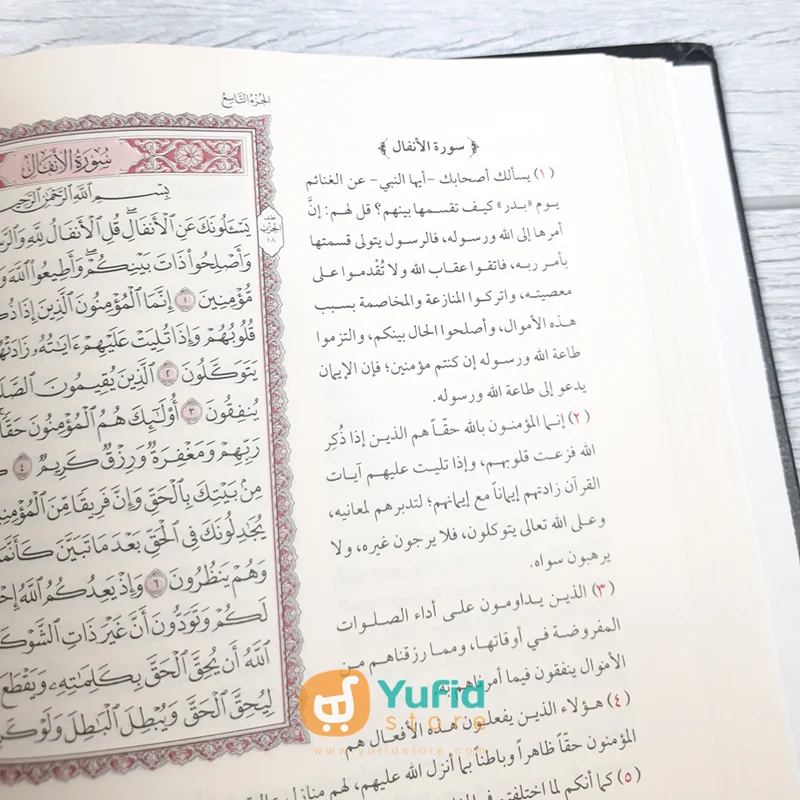 الجزء التاسع
سُورَةُ الأَنفَالِ
بِسْمِ اللَّهِ الرَّحْمَٰنِ الرَّحِيمِ
يَسْـَٔلُونَكَ عَنِ ٱلْأَنفَالِۖ قُلِ ٱلْأَنفَالُ لِلَّهِ وَٱلرَّ
وَأَصْلِحُوا۟ ذَاتَ بَيْنِكُمْۖ وَأَطِيعُوا۟ ٱللَّهَ
مُّؤْمِنِينَ ١ إِنَّمَا ٱلْمُؤْمِنُونَ ٱلَّذِينَ إِذَا ذُ
قُلُوبُهُمْ وَإِذَا تُلِيَتْ عَلَيْهِمْ ءَايَٰتُهُۥ زَادَتْهُ
يَتَوَكَّلُونَ ٢ ٱلَّذِينَ يُقِيمُونَ ٱلصَّ
يُنفِقُونَ ٣ أُو۟لَٰٓئِكَ هُمُ ٱلْمُؤْمِنُونَ حَقًّا
رَبِّهِمْ وَمَغْفِرَةٌ وَرِزْقٌ كَرِيمٌ ٤
مِنۢ بَيْتِكَ بِٱلْحَقِّ وَإِنَّ فَرِيقًا مِّنَ ٱلْمُؤْمِنِ
يُجَٰدِلُونَكَ فِى ٱلْحَقِّ بَعْدَ مَا تَبَيَّنَ كَأَنَّمَا
وَهُمْ يَنظُرُونَ ٦ وَإِذْ يَعِدُكُمُ ٱللَّهُ إِحْ
لَكُمْ وَتَوَدُّونَ أَنَّ غَيْرَ ذَاتِ ٱلشَّوْكَ
ٱللَّهُ أَن يُحِقَّ ٱلْحَقَّ بِكَلِمَٰتِهِۦ وَيَقْطَعَ
لِيُحِقَّ ٱلْحَقَّ وَيُبْطِلَ ٱلْبَٰطِلَ وَلَوْ كَرِ
نصف
الحزب
١٨
﴿سورة الأنفال﴾
(١) يسألك أصحابك -أيها النبي- عن الغنائم
يوم «بدر» كيف تقسمها بينهم؟ قل لهم: إنَّ
أمرها إلى الله ورسوله، فالرسول يتولى قسمتها
بأمر ربه، فاتقوا عقاب الله ولا تُقدموا على
معصيته، واتركوا المنازعة والمخاصمة بسبب
هذه الأموال، وأصلحوا الحال بينكم، والتزموا
طاعة الله ورسوله إن كنتم مؤمنين؛ فإن الإيمان
يدعو إلى طاعة الله ورسوله.
(٢) إنما المؤمنون بالله حقّاً هم الذين إذا ذُكِر
الله فزعت قلوبهم، وإذا تليت عليهم آيات
القرآن زادتهم إيماناً مع إيمانهم؛ لتدبرهم لمعانيه،
وعلى الله تعالى يتوكلون، فلا يرجون غيره، ولا
يرهبون سواه.
(٣) الذين يداومون على أداء الصلوات
المفروضة في أوقاتها، ومما رزقناهم من
الأموال ينفقون فيما أمرناهم به.
(٤) هؤلاء الذين يفعلون هذه الأفعال هم
المؤمنون حقّاً ظاهراً وباطناً بما أنزل الله عليهم، لهم منازل
(٥) كما أنكم لما اختلفتم في
Yufid
store
www.yufidstore.com